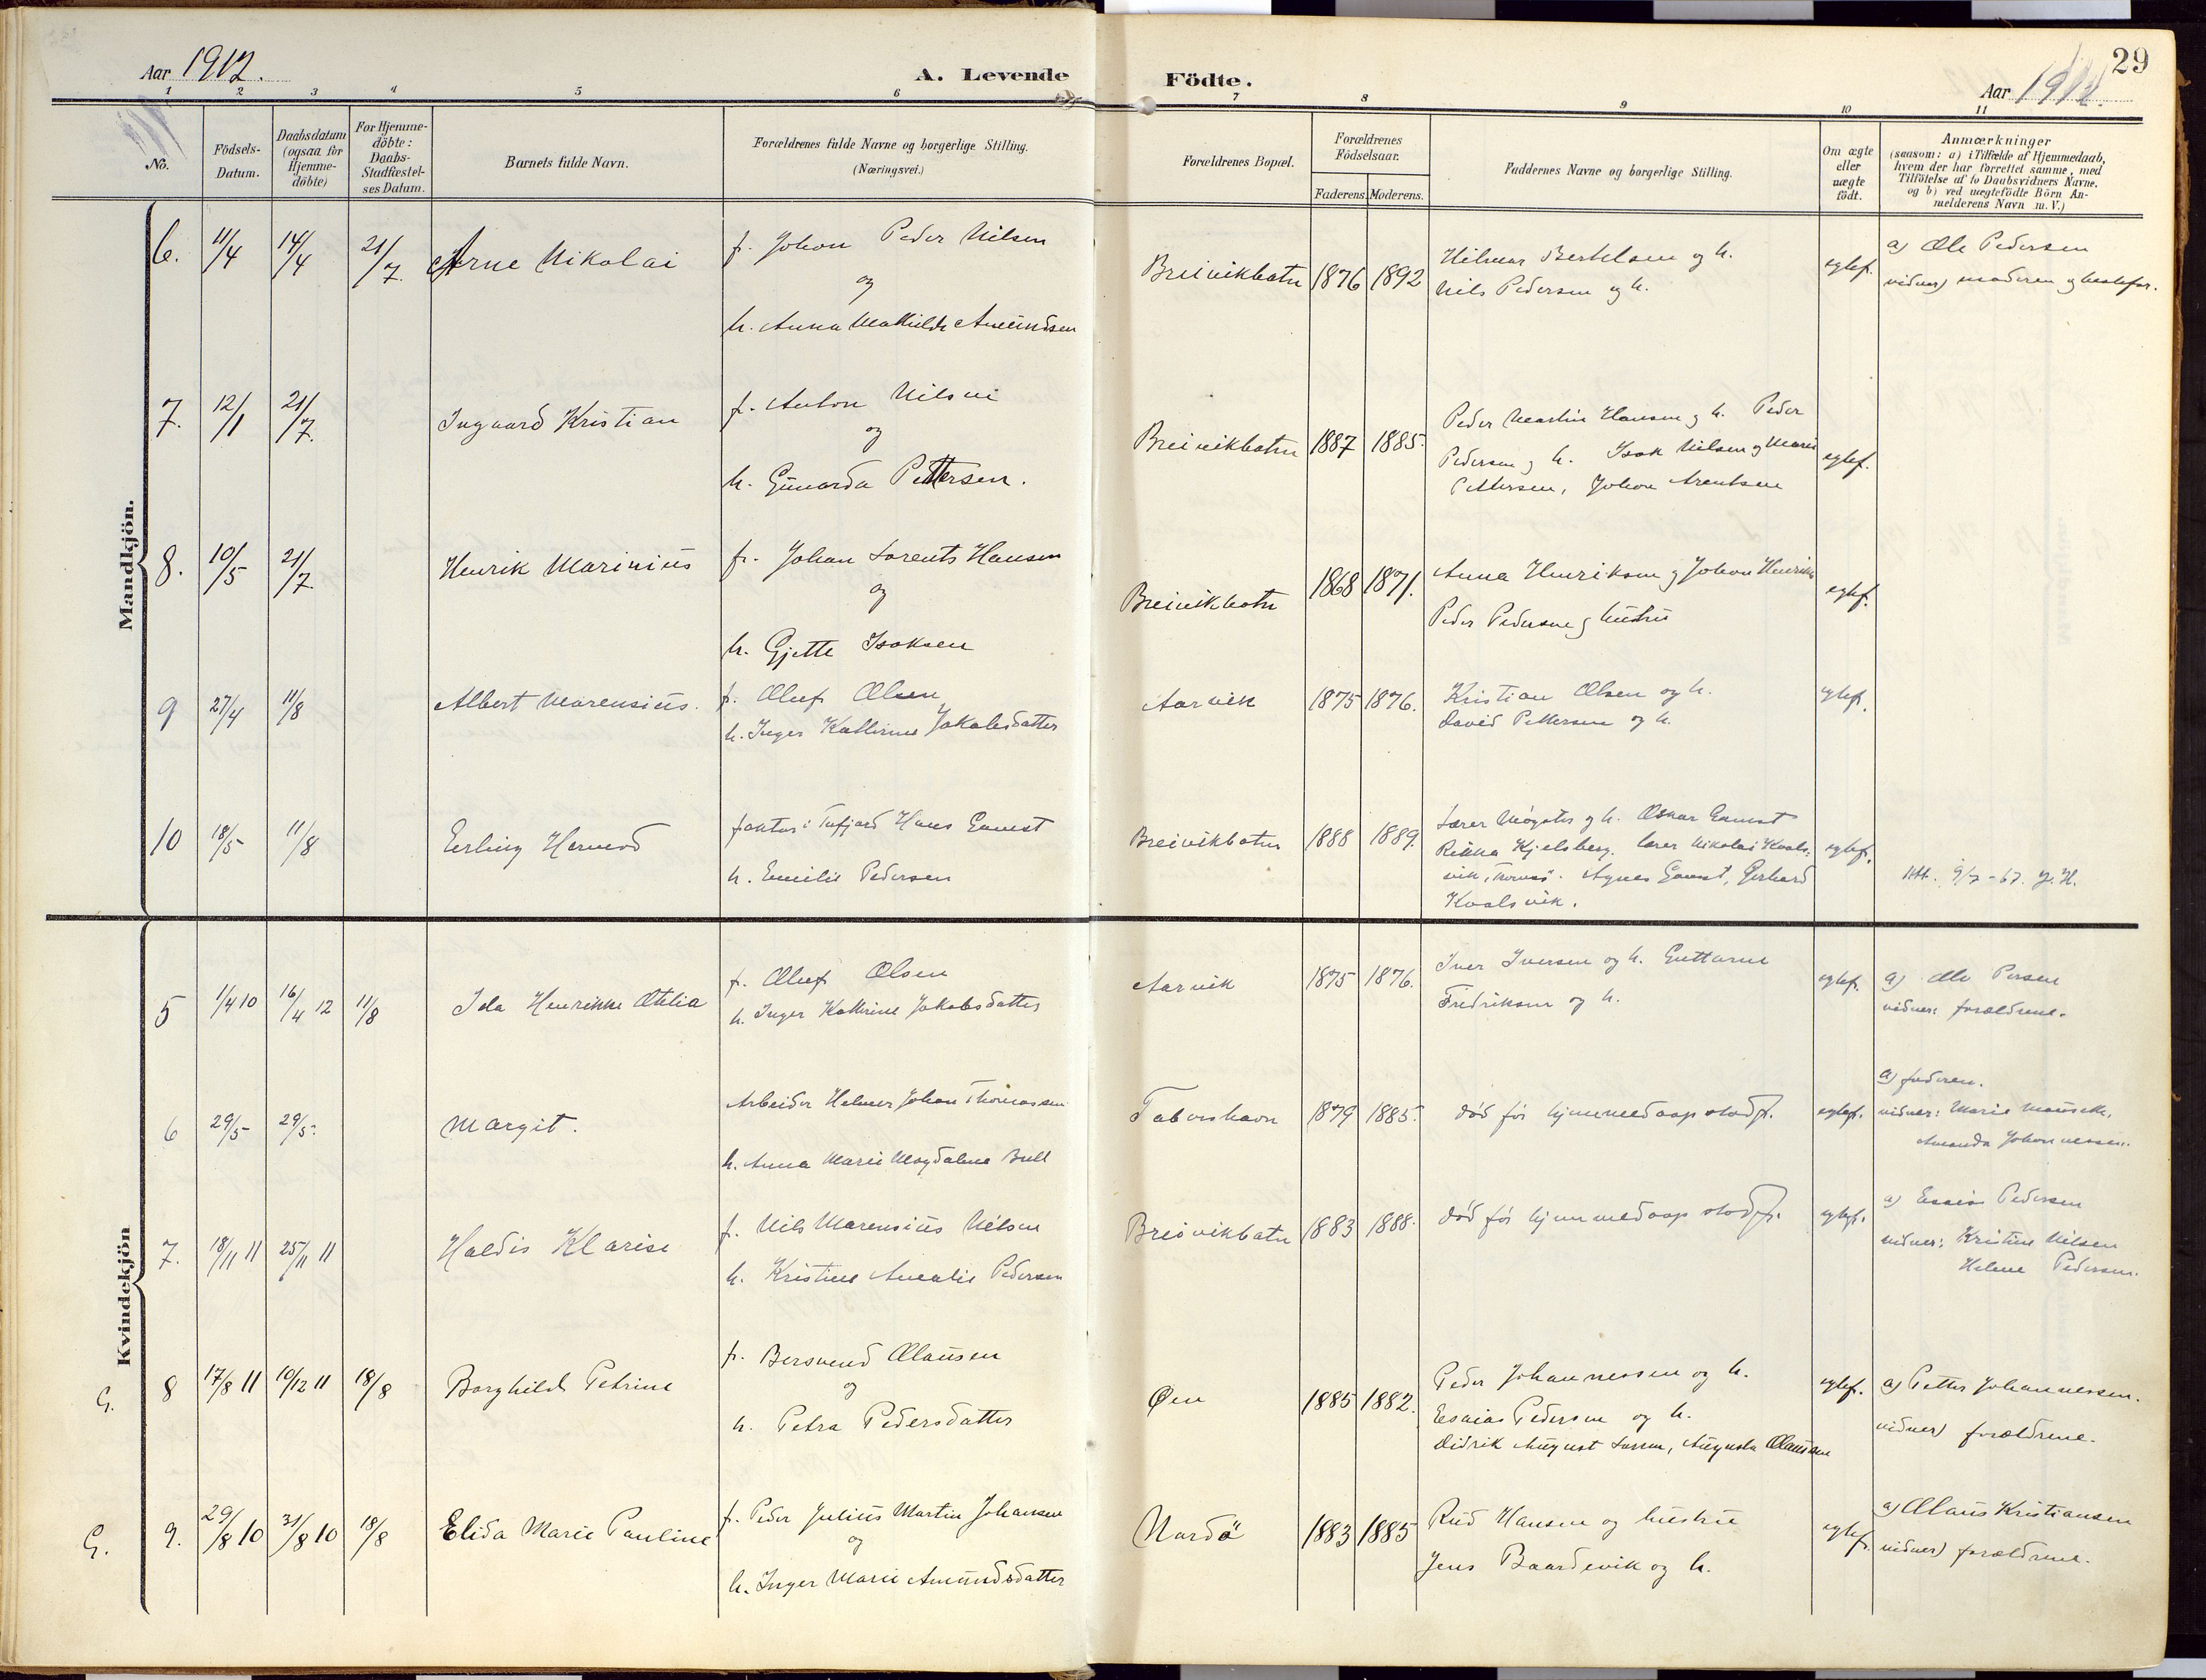 Aar 1912.
A. Levende Födte.
29
Aar 1912.
1 2 3 4 5 6 7 8 9 10 11
No.
Födsels-Datum.
Daabsdatum (ogsaa for Hjemme-döbte)
For Hjemme-döbte: Daabs-Stadfæstel-ses Datum.
Barnets fulde Navn.
Forældrenes fulde Navne og borgerlige Stilling.
(Næringsvei.)
Forældrenes Bopæl.
Forældrenes Födselsaar.
Faderens. Moderens.
Faddernes Navne og borgerlige Stilling.
Om ægte eller uægte födt.
Anmærkninger
(saasom: a) i Tilfælde af Hjemmedaab,
hvem der har forrettet samme, med
Tilföielse af to Daabsvidners Navne.
og b) ved uægtefödte Börn An-
melderens Navn m. V.)
Mandkjön.
6. 11/4 14/4 21/7. Arne Nikolai
f. Johan Peder Nilsen
og
h. Anna Mathilde Amundsen
Breivikbotn 1876 1892
Hilmar Bertelsen og h.
Nils Pedersen og h.
egtef.
a) Ole Pedersen
vidner) moderen og bestefar.
7. 12/1 21/7. Ingvard Kristian
f. Anton Nilsen
og
h. Gunarda Pettersen.
Breivikbotn 1887 1885.
Peder Martin Hansen og h. Peder
Pedersen og h. Isak Nilsen og Marie
Pettersen, Johan Arentsen
egtef.
8. 10/5 21/7. Henrik Marinius
fr. Johan Lorents Hansen
og
h. Gjette Isaksen
Breivikbotn 1868 1871.
Anna Henriksen og Johan Henriks
Peder Pedersen og hustru
egtef.
9 27/4 11/8 Albert Marensius.
f. Oluf Olsen
h. Inger Kathrine Jakobsdatter
Aarvik 1875 1876.
Kristian Olsen og h.
David Pettersen og h.
egtef.
10 18/5 11/8 Erling Hermod
faktor i Tufjord Hans
h. Emilie Pedersen
Breivikbotn 1888 1889.
Lærer og h. Oskar
Kjelsberg. lærer Nikolai Kvals-
vik, Tromsö. Agnes, Gerhard
Kvalsvik.
egtef.
9/7-67. J.H.
Kvindekjön
5 1/4 10 16/4 12 11/8 Ida Henrikke Otelia
f. Oluf Olsen
h. Inger Kathrine Jakobsdatter
Aarvik 1875 1876.
Iver Iversen og h. Guttorm
Fredriksen og h.
egtef.
a) Ole Persen
vidner: forældrene.
6 29/5 29/5. Margit.
Arbeider Helmer Johan Thomassen
h. Anna Marie Magdalena Bull
Taborshavn 1879 1885.
död för hjemmedaap stadf.
egtef.
a) faderen.
vidner: Marie
Amanda Johannessen.
7. 18/11 11 25/11 11 Haldis Klarise
f. Nils Marensius Nilsen
h. Kristine Amalie Pedersen
Breivikbotn 1883 1888.
död för hjemmedaap stadf.
egtef.
a) Esaias Pedersen
vidner: Kristine Nilsen
Helene Pedersen.
G. 8 17/8 11 10/12 11 18/8 Borghild Petrine
f. Bersvend Olausen
og
h. Petra Pedersdatter
Øen 1885 1882.
Peder Johannessen og h.
Esaias Pedersen og h.
Didrik August, Augusta Olausen
egtef.
a) Petter Johannessen.
vidner) forældrene.
G. 9. 29/8 10 31/8 10 18/8 Elida Marie Pauline
f. Peder Julius Martin Johansen
og
h. Inger Marie Amundsdatter
Nordö 1883 1885
Hansen og hustru
Jens Baardsvik og h.
egtef.
a) Olaus Kristiansen
vidner) forældrene.